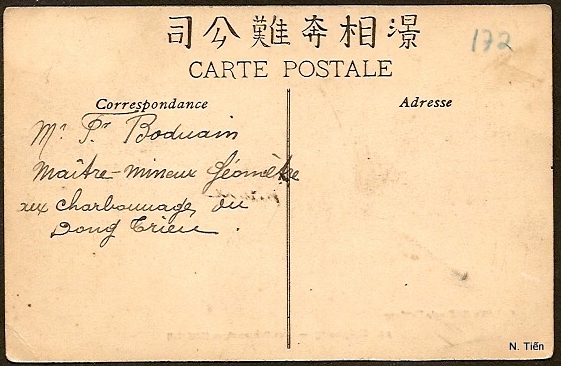 司公難奔相㵋
172
CARTE POSTALE
Correspondance
Adresse
Mr Pr Boduain
Maître-mineur Géomètre
aux charbonnages du
Dong Trieu.
N. Tiến